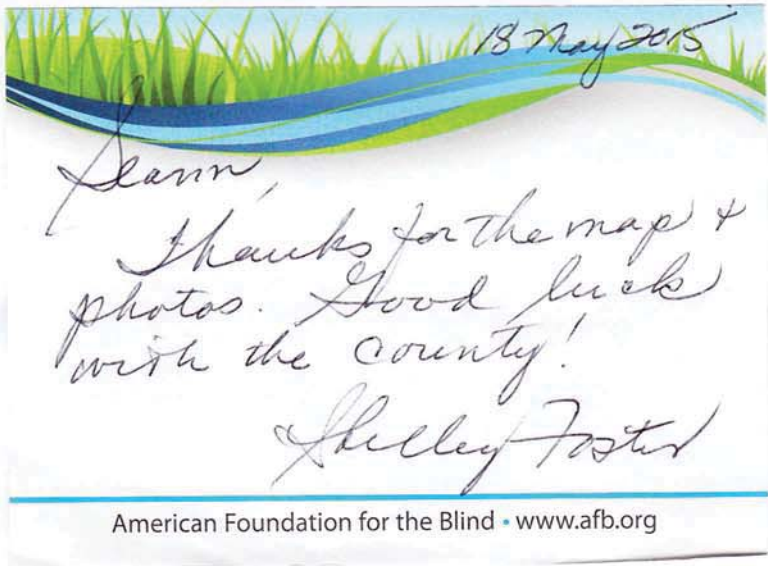 18 May 2015
Seann,
Thanks for the map +
photos. Good luck
with the county!
Shelley Foster
American Foundation for the Blind • www.afb.org